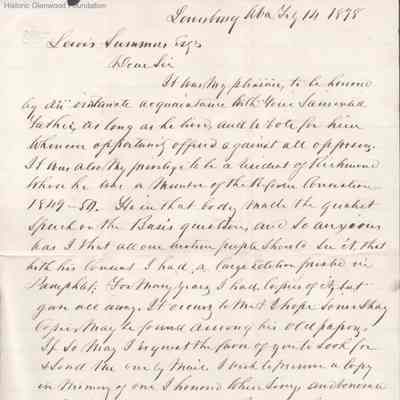 Historic Glenwood Foundation
Lewisburg WVa July 14 1878
Lewis Summers Esqr
Dear Sir
It was my pleasure, to be honored
by an intimate acquaintance with your lamented
Father, as long as he lived, and to vote for him
whenever opportunity offered against all opposers.
It was also my privilege to be a resident of Richmond
when he was a Member of the Reform Convention
1849–50. He in that body made the greatest
Speech on the Basis question, and so anxious
was I that all our western people should see it, that
with his consent I had a large edition printed in
Pamphlet. For many years I had copies of it, but
gave all away. It occurs to me & I hope some stray
Copies may be found among his old papers
If so may I request the favor of you to look for
& send me one by mail. I wish to preserve a Copy
in memory of one I honored when living and honored